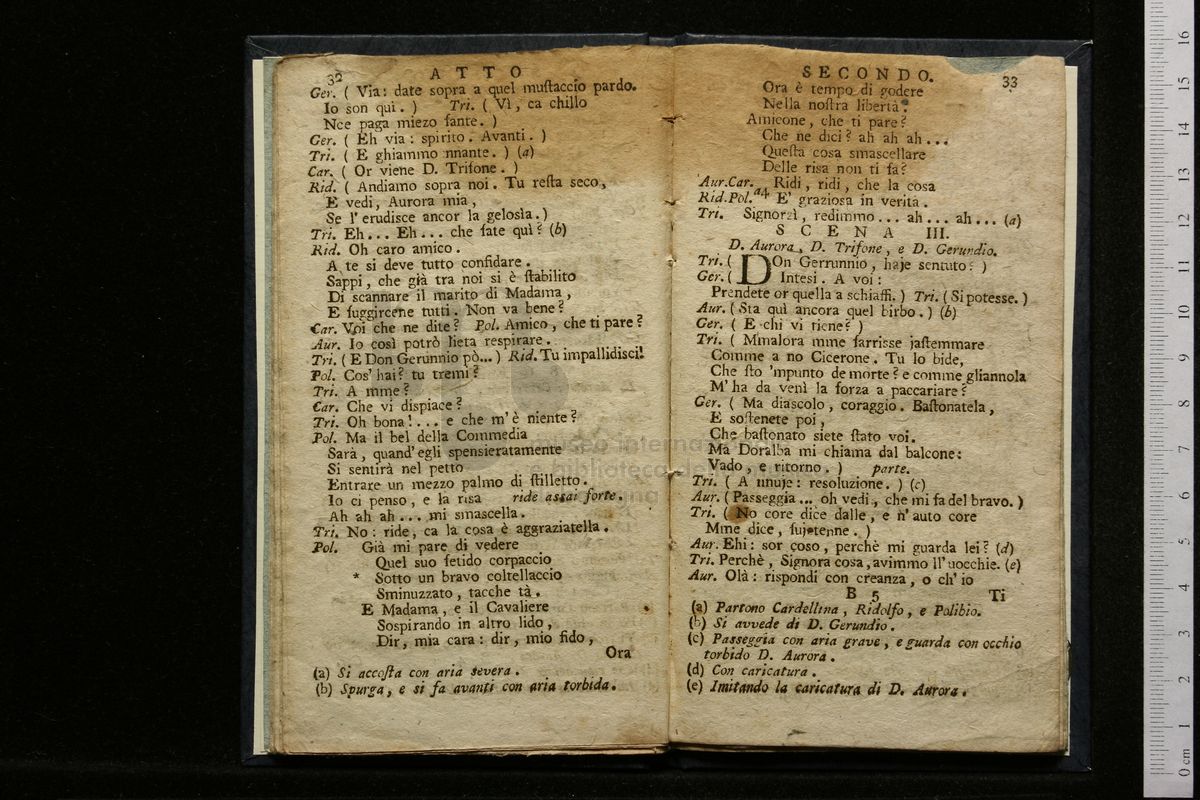 32 ATTO
Ger. ( Via: date sopra a quel muſtaccio pardo.
Io son qui. ) Tri. ( Vì, ca chillo
Nce paga miezo fante. )
Ger. ( Eh via: spirito. Avanti. )
Tri. ( E ghiammo nnante. ) (a)
Car. ( Or viene D. Trifone. )
Rid. ( Andiamo sopra noi. Tu reſta seco,
E vedi, Aurora mia,
Se l'erudisce ancor la gelosìa.)
Tri. Eh... Eh... che fate quì? (b)
Rid. Oh caro amico.
A te si deve tutto confidare.
Sappi, che già tra noi si è ſtabilito
Di scannare il marito di Madama,
E fuggircene tutti. Non va bene?
Car. Voi che ne dite? Pol. Amico, che ti pare?
Aur. Io così potrò lieta respirare.
Tri. ( E Don Gerunnio pò...) Rid. Tu impallidisci!
Pol. Cos' hai? tu tremi?
Tri. A mme?
Car. Che vi dispiace?
Tri. Oh bona!... e che m'è niente?
Pol. Ma il bel della Commedia
Sarà, quand'egli spensieratamente
Si sentirà nel petto
Entrare un mezzo palmo di ſtilletto.
Io ci penso, e la risa ride assai forte.
Ah ah ah... mi smascella.
Tri. No: ride, ca la cosa è aggraziatella.
Pol. Già mi pare di vedere
Quel suo fetido corpaccio
* Sotto un bravo coltellaccio
Sminuzzato, tacche tà.
E Madama, e il Cavaliere
Sospirando in altro lido,
Dir, mia cara: dir, mio fido,
Ora
(a) Si accoſta con aria severa.
(b) Spurga, e si fa avanti con aria torbida.
SECONDO. 33
Ora è tempo di godere
Nella noſtra libertà.
Amicone, che ti pare?
Che ne dici? ah ah ah...
Queſta cosa smascellare
Delle risa non ti fa?
Aur.Car. Ridi, ridi, che la cosa
Rid.Pol. a4 E' graziosa in verità.
Tri. Signorsì, redimmo... ah... ah... (a)
SCENA III.
D. Aurora, D. Trifone, e D. Gerundio.
Tri. ( DOn Gerrunnio, haje sentuto? )
Ger. ( Intesi. A voi:
Prendete or quella a schiaffi. ) Tri. ( Si potesse. )
Aur. ( Sta quì ancora quel birbo. ) (b)
Ger. ( E chi vi tiene? )
Tri. ( Mmalora mme farrisse jaſtemmare
Comme a no Cicerone. Tu lo bide,
Che ſto 'mpunto de morte? e comme gliannola
M'ha da venì la forza a paccariare?
Ger. ( Ma diascolo, coraggio. Baſtonatela,
E soſtenete poi,
Che baſtonato siete ſtato voi.
Ma Doralba mi chiama dal balcone:
Vado, e ritorno. ) parte.
Tri. ( A nnuje: resoluzione. ) (c)
Aur. ( Passeggia... oh vedi, che mi fa del bravo. )
Tri. ( No core dice dalle, e n'auto core
Mme dice, fujetenne. )
Aur. Ehi: sor coso, perchè mi guarda lei? (d)
Tri. Perchè, Signora cosa, avimmo ll'uocchie. (e)
Aur. Olà: rispondi con creanza, o ch'io
B 5 Ti
(a) Partono Cardellina, Ridolfo, e Polibio.
(b) Si avvede di D. Gerundio.
(c) Passeggia con aria grave, e guarda con occhio
torbido D. Aurora.
(d) Con caricatura.
(e) Imitando la caricatura di D. Aurora.
museo internazionale
e biblioteca della musica
0 cm 1 2 3 4 5 6 7 8 9 10 11 12 13 14 15 16